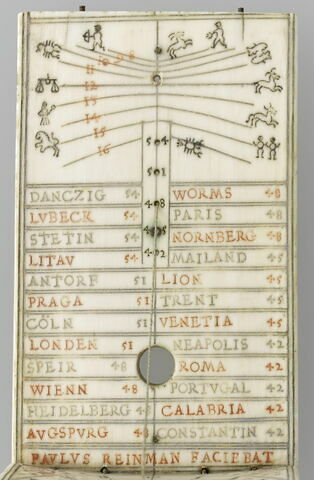 10 9 8
11
12
13
14
15
16
5 4
5 1
4 8
4 5
4 2
DANCZIG 54 WORMS 48
LVBECK 54 PARIS 48
STETIN 54 NORNBERG 48
LITAV 54 MAILAND 45
ANTORF 51 LION 45
PRAGA 51 TRENT 45
CÖLN 51 VENETIA 45
LONDEN 51 NEAPOLIS 42
SPEIR 48 ROMA 42
WIENN 48 PORTVGAL 42
HEIDELBERG 48 CALABRIA 42
AVGSPVRG 48 CONSTANTIN 42
PAVLVS REINMAN FACIEBAT